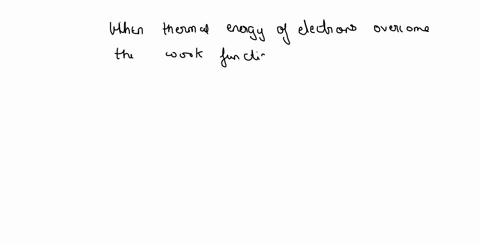 When thermal enragy of electrons overcome
the work functi